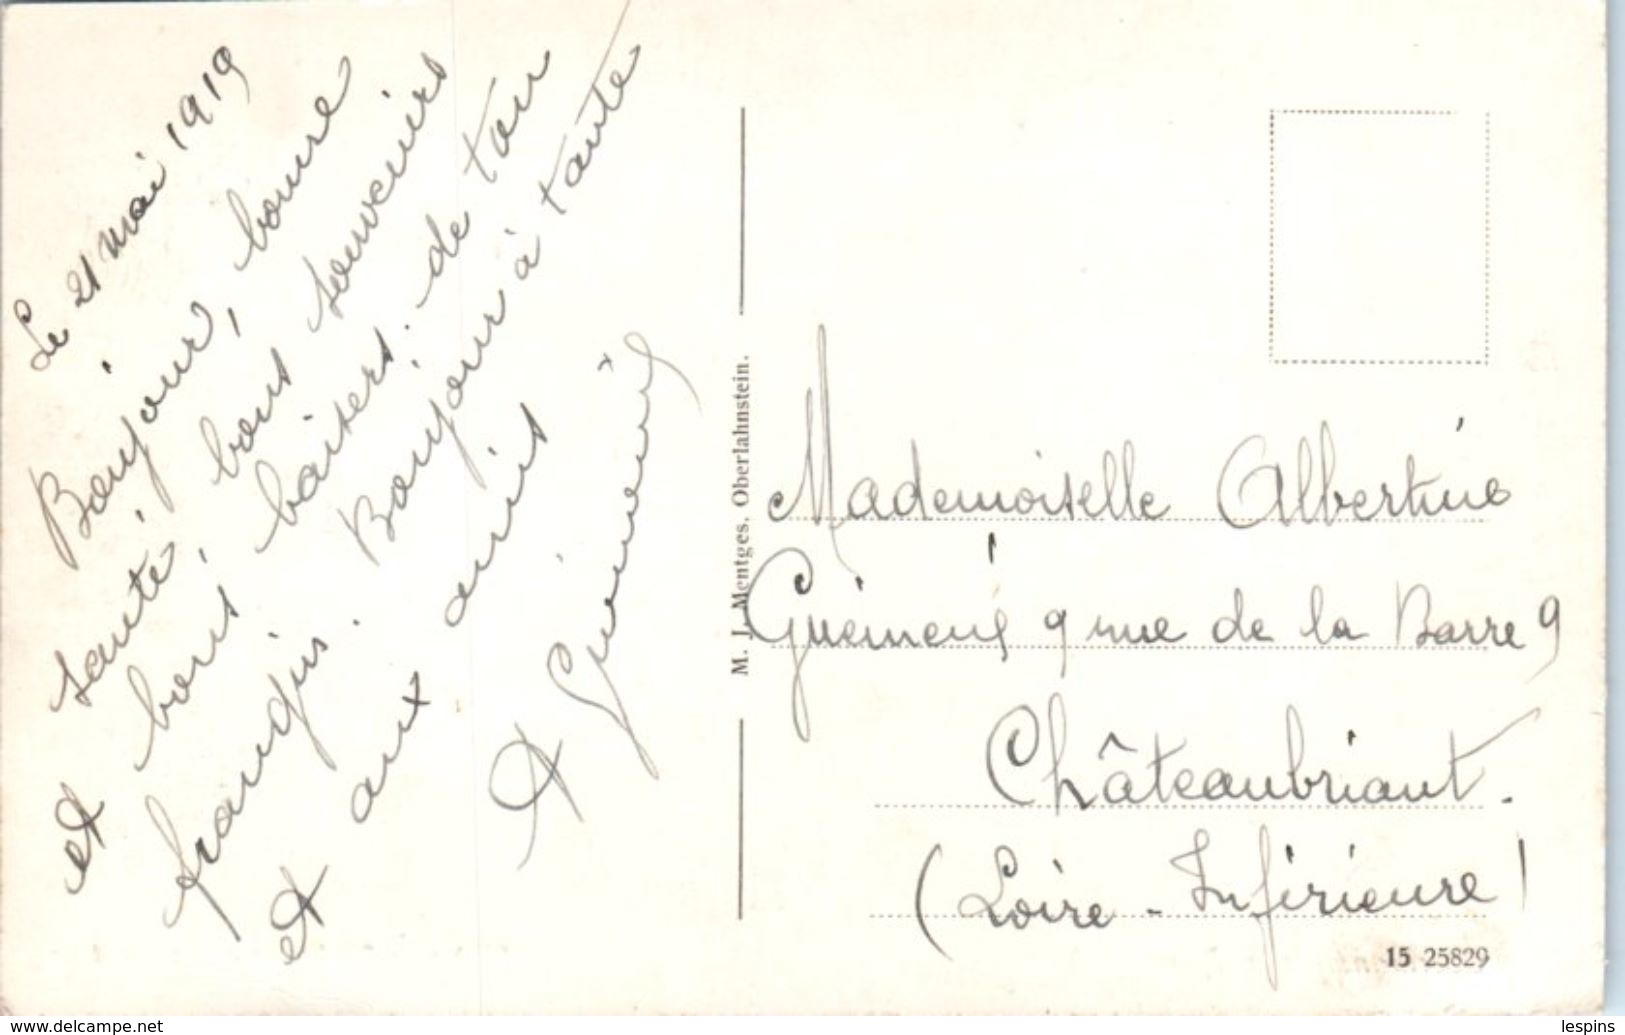 Le 21 mai 1919
Bonjour, bonne
santé, bons souvenirs
et bons baisers de ton
frangin. Bonjour à tante
et aux amis
A Guémené
M. J. Mentges, Oberlahnstein.
Mademoiselle Albertine
Guémené 9 rue de la Barre 9
Châteaubriant.
(Loire-Inférieure)
15 25829
www.delcampe.net
lespins